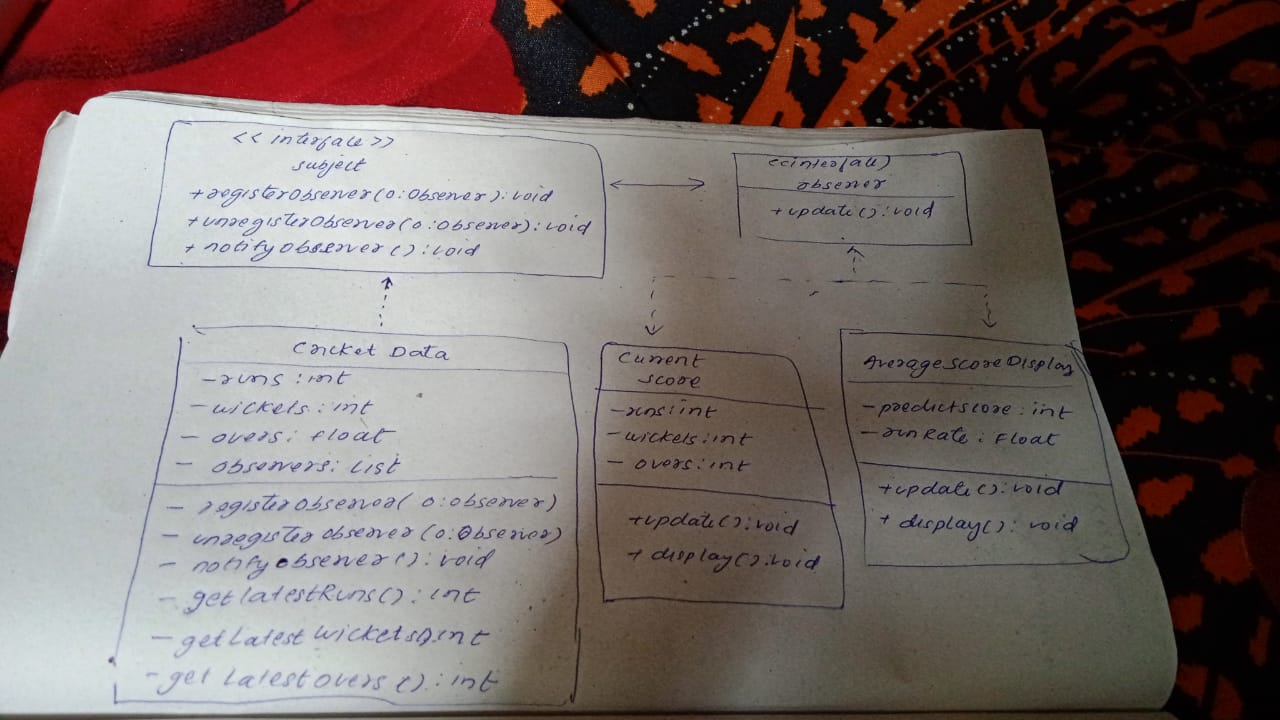 << interface >>
subject
+registerObserver(o:Observer):void
+unregisterObserver(o:Observer):void
+ notifyObserver():void
<<interface>
observer
+update():void
Cricket Data
-runs :int
-wickets:int
- overs: float
- observers: List
- registerobserver( o:observer)
- unregister observer (o:Observer)
- notifyobserver():void
- getlatestRuns(): int
- getLatest wickets():int
- get Latestovers(): int
Current
score
-runs:int
-wickets:int
- overs:int
+update():void
+ display():void
AverageScoreDisplay
-predictscore: int
-runRate: Float
+update():void
+ display(): void